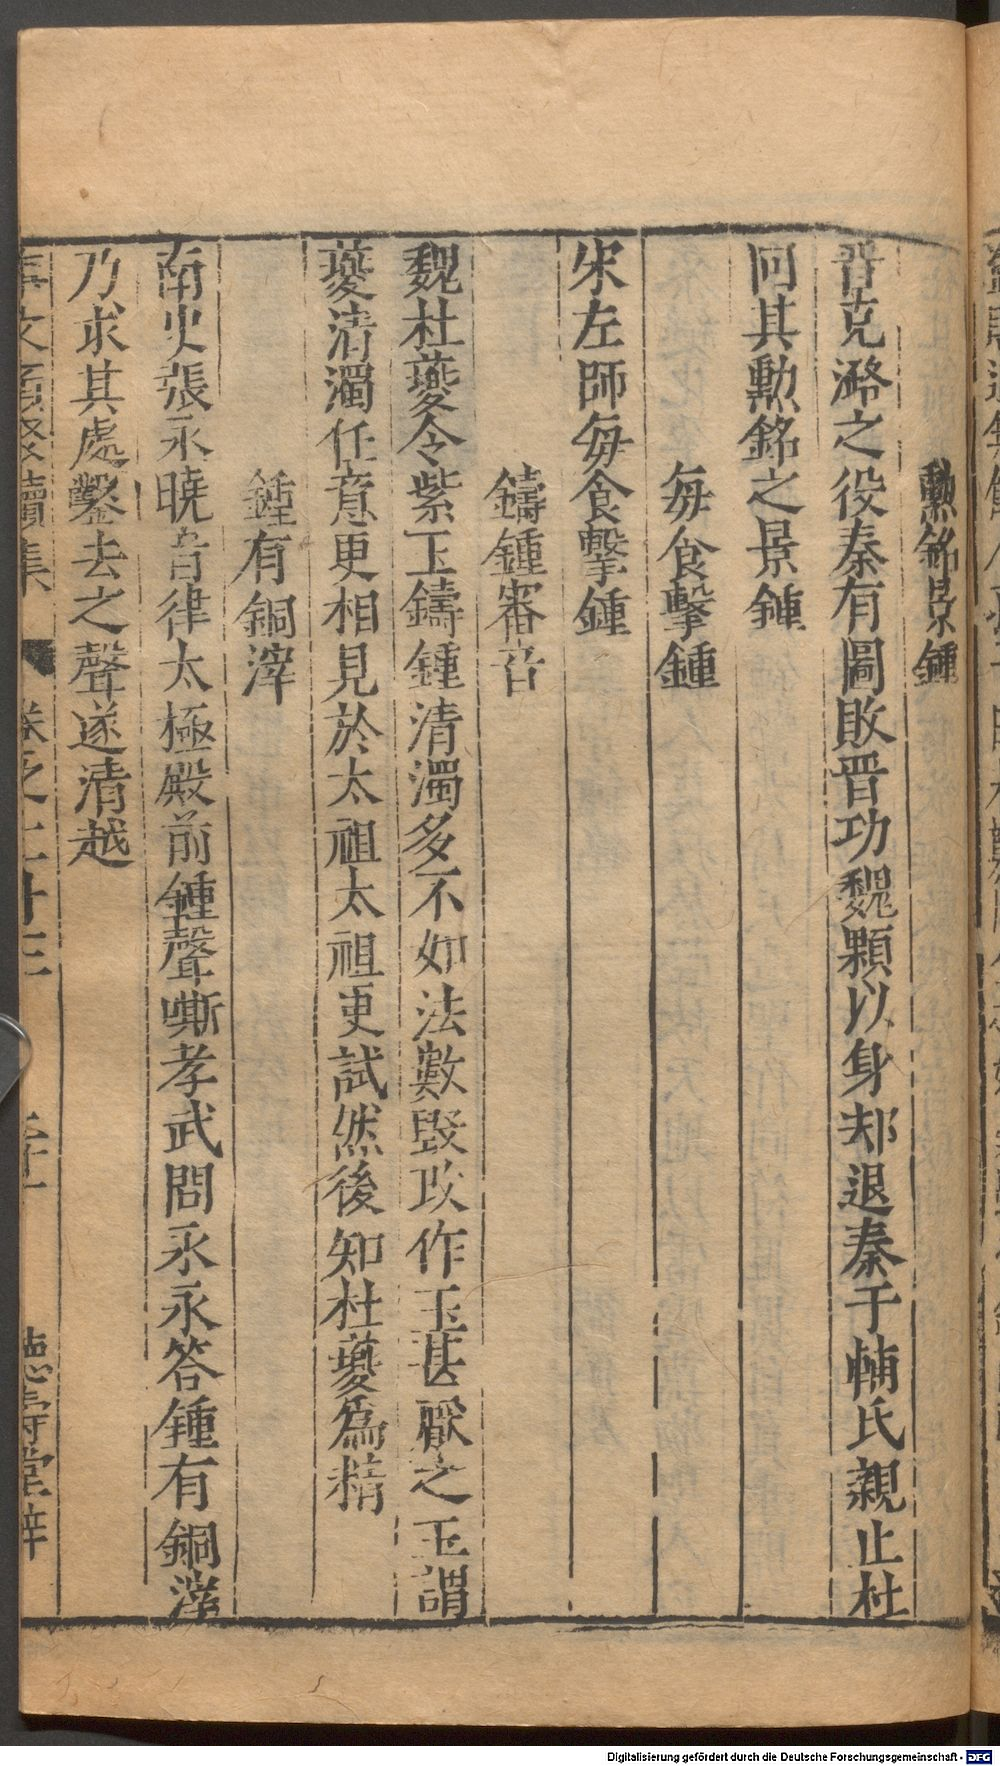 勲銘景鍾
晋克潞之役秦有圖敗晋功魏顆以身却退秦于輔氏親止杜
回其勲銘之景鍾
每食擊鍾
宋左師每食擊鍾
鑄鍾審音
魏杜夔令紫玉鑄鍾清濁多不如法數毀改作玉甚厭之玉謂
夔清濁任意更相見於太祖太祖更試然後知杜夔爲精
鍾有銅滓
南史張永曉音律太極殿前鍾聲嘶孝武問永永答鍾有銅滓
乃求其處鑿去之聲遂清越
事文類聚續集 卷之二十三 德壽堂梓
Digitalisierung gefördert durch die Deutsche Forschungsgemeinschaft - DFG